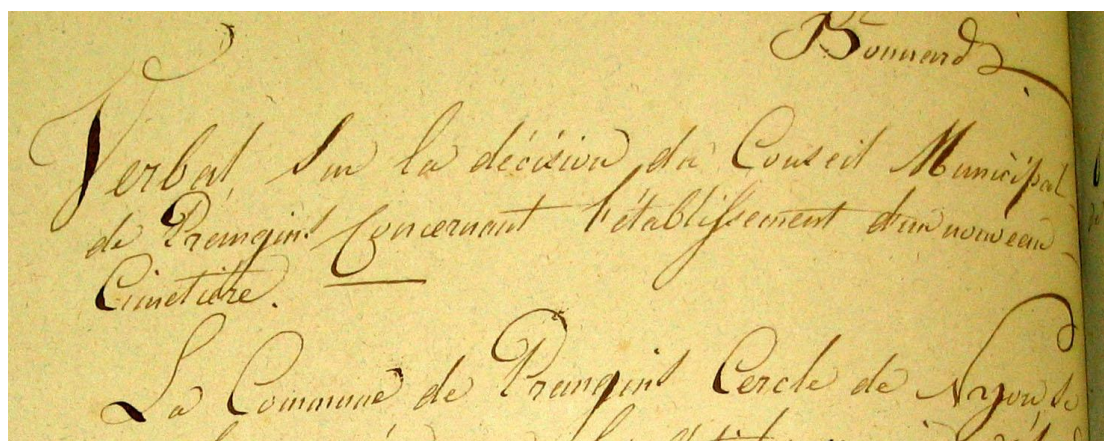 Bonnard
Verbal, sur la décision du Conseil Municipal
de Prangins Concernant l'établissement d'un nouveau
Cimetière.
La Commune de Prangins Cercle de Nyon, se